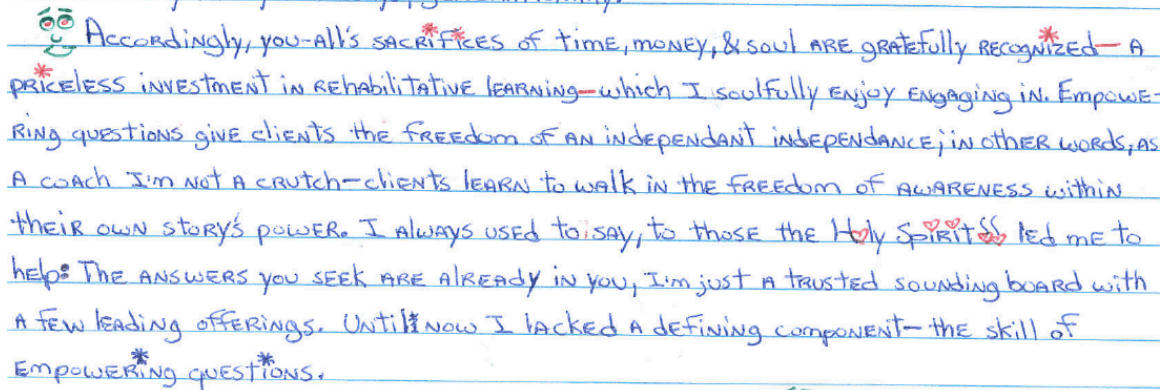 Accordingly, you-all's sacrifices of time, money, & soul are gratefully recognized— a
priceless investment in rehabilitative learning—which I soulfully enjoy engaging in. Empowe-
ring questions give clients the freedom of an independant independance; in other words, as
a coach I'm not a crutch—clients learn to walk in the freedom of awareness within
their own story's power. I always used to say, to those the Holy Spirit led me to
help: The answers you seek are already in you, I'm just a trusted sounding board with
a few leading offerings. Until now I lacked a defining component— the skill of
empowering questions.